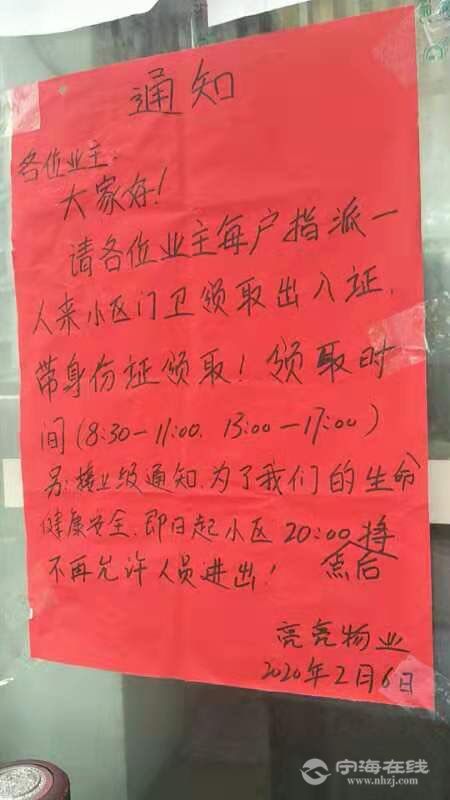 通知
各位业主:
大家好!
请各位业主每户指派一
人来小区门卫领取出入证.
带身份证领取!领取时
间(8:30-11:00. 13:00-17:00)
另:接上级通知.为了我们的生命
健康安全.即日起小区20:00点后将
不再允许人员进出!
亮亮物业
2020年2月6日
宁海在线
www.nhzj.com